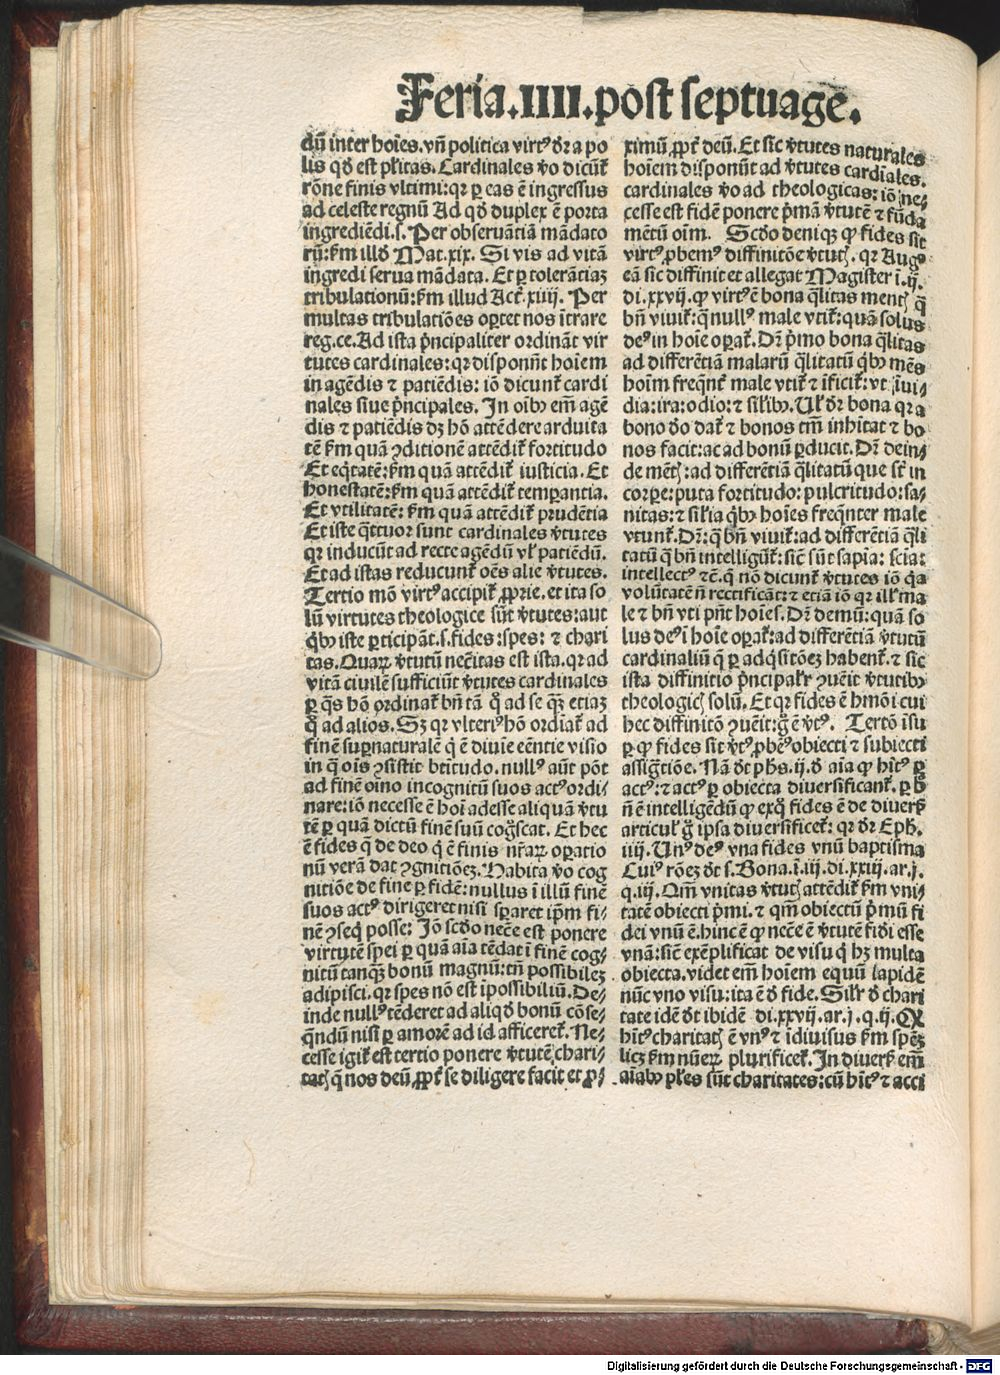 Feria.IIII.post septuage.
dū inter hoīes.vn̄ politica virtꝰ d̄r a po
lis qd̄ est pl̄itas. Cardinales v̄o dicūt̄
rōne finis vltimi:qꝛ ꝑ eas ē ingressus
ad celeste regnū Ad qd̄ duplex ē porta
ingrediēdi.s. Per obseruātiā mādato
rū:fm̄ illd̄ Mat.xix. Si vis ad vitā
ingredi serua mādata. Et ꝑ tolerātiaꝫ
tribulationū:fm̄ illud Act̄.xiiij. Per
multas tribulatiōes oꝑtet nos ītrare
reg.ce.Ad ista p̄ncipaliter ordināt vir
tutes cardinales:qꝛ disponn̄t hoīem
in agēdis ⁊ patiēdis: iō dicunt̄ cardi
nales siue p̄ncipales. In oībꝫ em̄ agē
dis ⁊ patiēdis dꝫ hō attēdere arduita
tē fm̄ quā ꝯditionē attēdit̄ fortitudo
Et eq̄tatē:fm̄ quā attēdit̄ iusticia. Et
honestatē:fm̄ quā attēdit̄ temꝑantia.
Et vtilitatē: fm̄ quā attēdit̄ prudētia
Et iste q̄ttuor sunt cardinales v̄tutes
qꝛ inducūt ad recte agēdū vl̓ patiēdū.
Et ad istas reducunt̄ oēs alie v̄tutes.
Tertio mō virtꝰ accipit̄ ꝓprie. et ita so
lū virtutes theologice sūt v̄tutes:aut
q̄bꝫ iste ꝑticipāt.s.fides:spes: ⁊ chari
tas.Quaꝝ v̄tutū nec̄itas est ista.qꝛ ad
vitā ciuilē sufficiūt v̄tutes cardinales
ꝑ q̄s hō ordinat̄ bn̄ tā q̄ ad se q̄ꝫ etiaꝫ
q̄ ad alios. Sꝫ qꝛ vlteriꝰ hō ordīat̄ ad
finē suꝑnaturalē q̄ ē diuīe eēntie visio
in q̄ oīs ꝯsistit btītudo. nullꝰ aūt pōt
ad finē oīno incognitū suos actꝰ ordi
nare: iō necesse ē hoī adesse aliquā v̄tu
tē ꝑ quā dictū finē suū cog̓scat. Et hec
ē fides q̄ de deo q̄ ē finis nr̄aꝝ oꝑatio
nū verā dat ꝯgnitiōeꝫ. Habita v̄o cog
nitiōe de fine ꝑ fidē: nullus ī illū finē
suos actꝰ dirigeret nisi sꝑaret ip̄m fi-
nē ꝯseq̄ posse: Iō scd̄o nec̄e est ponere
virtutē spei ꝑ quā aīa tēdat ī finē cog-
nitū tanq̄ꝫ bonū magnū: tn̄ possibileꝫ
adipisci. qꝛ spes nō est īpossibiliū. De-
inde nullꝰ tēderet ad aliqd̄ bonū cōse-
q̄ndū nisi ꝑ amorē ad id afficeret̄. Ne-
cesse igit̄ est tertio ponere v̄tutē chari-
tatꝭ q̄ nos deū ꝓpt̄ se diligere facit et ꝓ-
ximū ꝓpt̄ deū. Et sic v̄tutes naturales
hoīem disponūt ad v̄tutes cardiales.
cardinales v̄o ad theologicas: iō ne-
cesse est fidē ponere p̄mā v̄tutē ⁊ fūda
mētū oīm. Scd̄o deniqꝫ ꝙ fides sit
virtꝰ ꝓbemꝰ diffinitōe v̄tutꝭ. qꝛ Augꝰ
eā sic diffinit et allegat Magister ī.ij.
di.xxvij. ꝙ virtꝰ ē bona q̄litas mentꝭ q̄
bn̄ viuit̄: q̄ nullꝰ male vtit̄: quā solus
deꝰ in hoīe oꝑat̄. Dr̄ p̄mo bona q̄litas
ad differētiā malarū q̄litatū q̄bꝫ mēs
hoīm freq̄nt̄ male vtit̄ ⁊ īficit̄: vt īui-
dia:ira:odio: ⁊ sil̓ibꝫ. Ul̓ d̄r bona qꝛ a
bono d̄o dat̄ ⁊ bonos tm̄ inhītat ⁊ bo
nos facit: ac ad bonū ꝑducit. Dr̄ dein-
de mētꝭ: ad differētiā q̄litatū que st̄ in
corꝑe: puta fortitudo: pulcritudo: sa-
nitas: ⁊ sil̓ia q̄bꝫ hoīes freq̄nter male
vtunt̄. Dr̄: q̄ bn̄ viuit̄: ad differētiā q̄li
tatū q̄ bn̄ intelligūt̄: sic̄ sūt sapīa: scīa:
intellectꝰ ⁊c̄. q̄ nō dicunt̄ v̄tutes iō q̄a
volūtatē n̄ rectificāt: ⁊ etiā iō qꝛ ill̓ ma
le ⁊ bn̄ vti pn̄t hoīes. Dr̄ demū: quā so
lus deꝰ ī hoīe oꝑat̄: ad differētiā v̄tutū
cardinaliū q̄ ꝑ adq̄sitōeꝫ habent̄. ⁊ sic
ista diffinitio p̄ncipal̓r ꝯuēit v̄tutibꝫ
theologicꝭ solū. Et qꝛ fides ē hmōi cui
hec diffinitō ꝯuēit: g̓ ē v̄tꝰ. Tertō īsu
ꝑ ꝙ fides sit v̄tꝰ ꝓbēꝰ obiecti ⁊ subiecti
assig̓tiōe. Nā d̄t ph̄s.ij.d̄ aīa ꝙ hītꝰ ꝑ
actꝰ: ⁊ actꝰ ꝑ obiecta diuersificant̄. ꝑ h̄
n̄ ē intelligēdū ꝙ exq̄ fides ē de diuers̄
articul̓ g̓ ipsa diuersificet̄: qꝛ d̄r Eph̄.
iiij. Unꝰ deꝰ vna fides vnū baptisma
Cuiꝰ rōeꝫ d̄t s. Bona.ī.iij.di.xxiij.ar.j.
q.iij. Qm̄ vnitas v̄tutꝭ attēdit̄ fm̄ vni-
tatē obiecti p̄mi. ⁊ qm̄ obiectū p̄mū fi
dei vnū ē. hinc ē ꝙ nec̄e ē v̄tutē fid̓i esse
vnā: sic̄ exēplificat de visu q̄ hꝫ multa
obiecta. videt em̄ hoīem equū lapidē
nūc vno visu: ita ē d̄ fide. Sil̓r d̄ chari
tate idē d̄t ibidē di.xxvij.ar.j.q.ij. Qꝫ
hītꝰ charitatꝭ ē vnꝰ ⁊ īdiuisus fm̄ spēꝫ
licꝫ fm̄ nūeꝝ plurificet̄. In diuers̄ em̄
aīabꝫ pl̓es sūt charitates: cū hītꝰ ⁊ acci
Digitalisierung gefördert durch die Deutsche Forschungsgemeinschaft - DFG